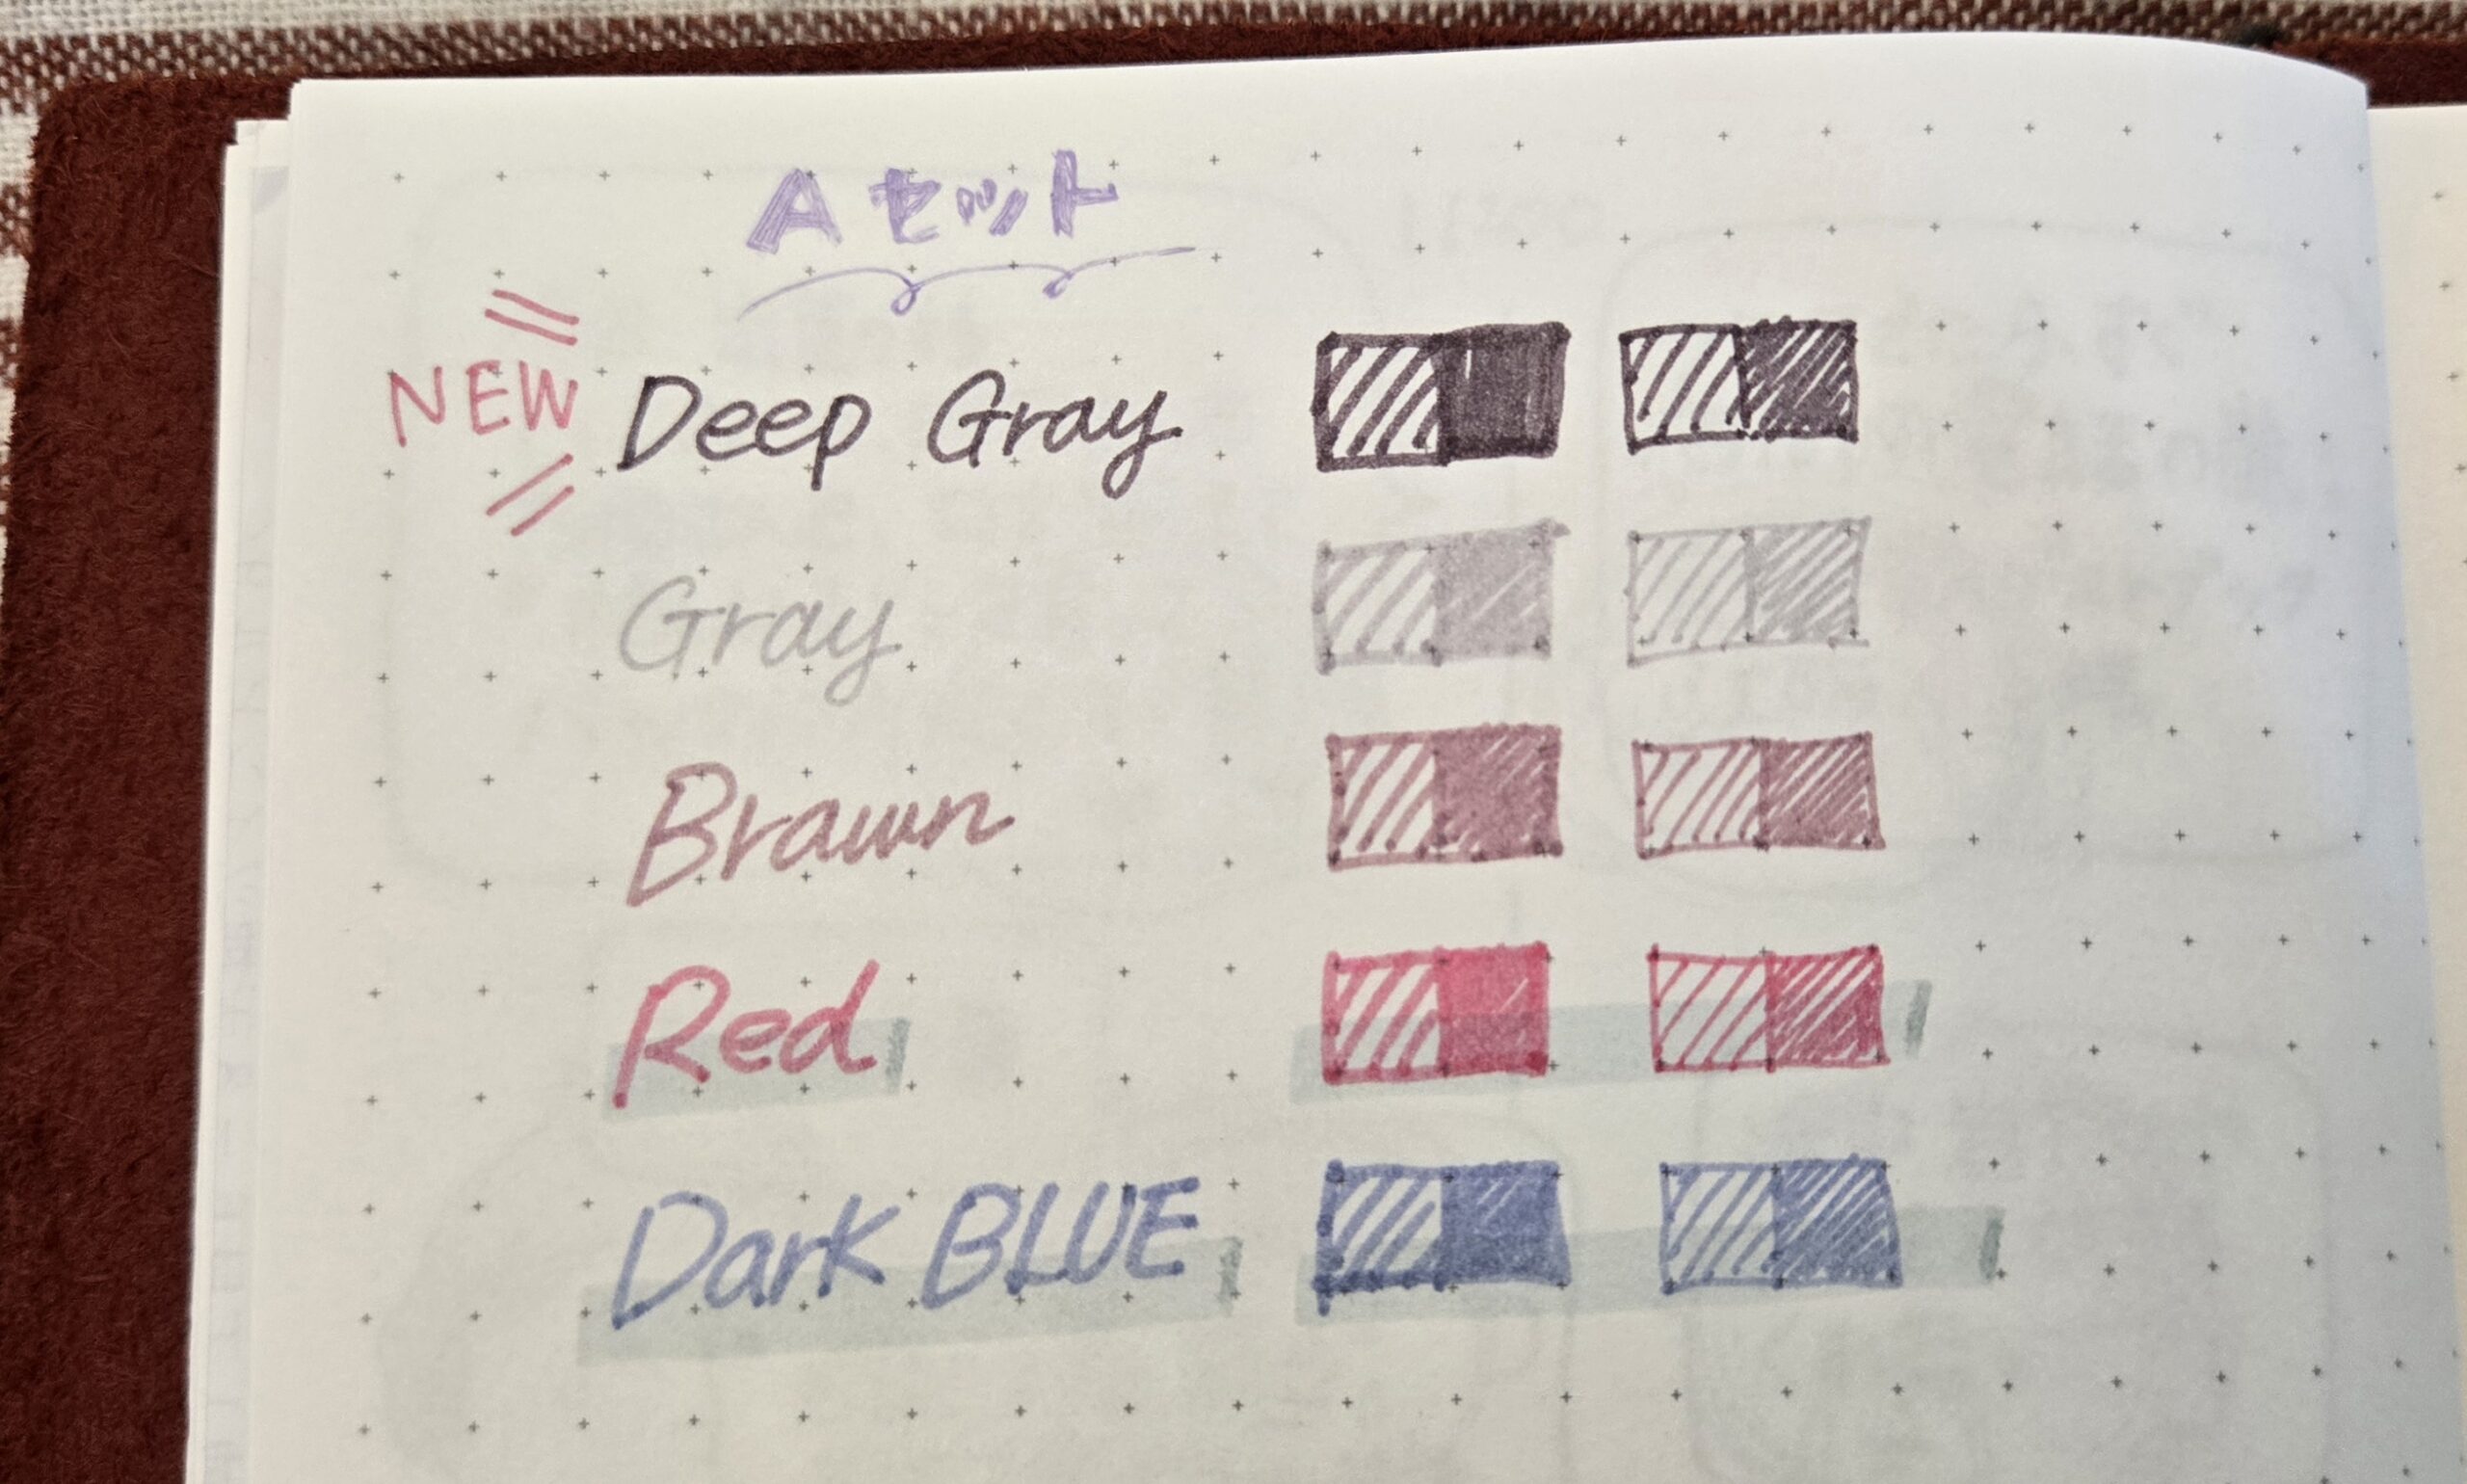 Aセット
NEW Deep Gray
Gray
Brawn
Red
Dark BLUE